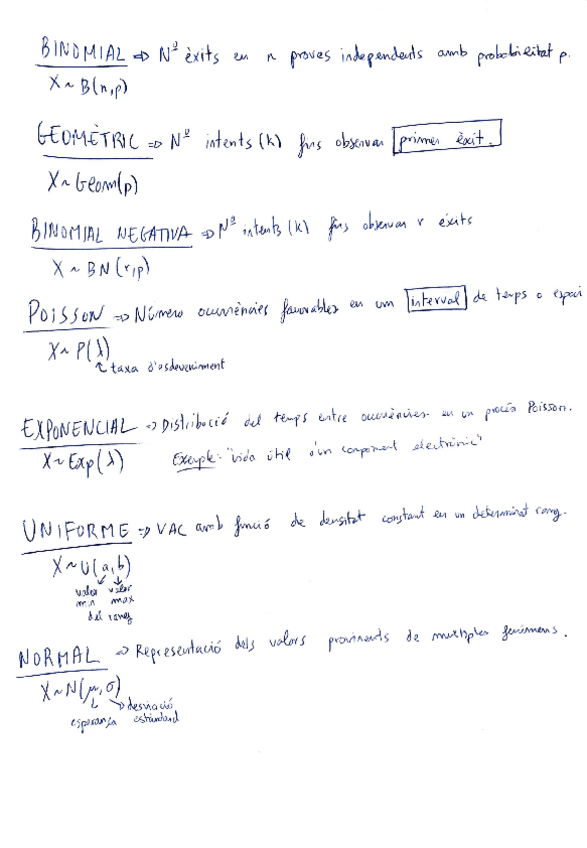 BINOMIAL ⇒ Nº èxits en n proves independents amb probabilitat p.
X ~ B(n,p)
GEOMÈTRIC ⇒ Nº intents (k) fins observar primer èxit.
X ~ Geom(p)
BINOMIAL NEGATIVA ⇒ Nº intents (k) fins observar r èxits
X ~ BN(r,p)
POISSON ⇒ Número ocurrències favorables en un interval de temps o espai
X ~ P(λ)
taxa d'esdeveniment
EXPONENCIAL ⇒ Distribució del temps entre ocurrències en un procés Poisson.
X ~ Exp(λ) Exemple: "vida útil d'un component electrònic"
UNIFORME ⇒ VAC amb funció de densitat constant en un determinat rang.
X ~ U(a,b)
valor valor
min max
del rang
NORMAL ⇒ Representació dels valors provinents de multiples fenòmens.
X ~ N(μ,σ)
desviació
esperança estàndard